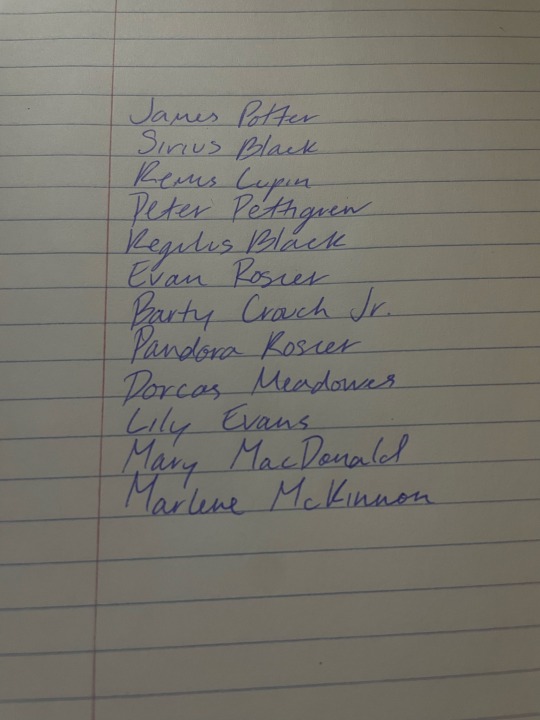 James Potter
Sirius Black
Remus Lupin
Peter Pettigrew
Regulus Black
Evan Rosier
Barty Crouch Jr.
Pandora Rosier
Dorcas Meadowes
Lily Evans
Mary MacDonald
Marlene McKinnon